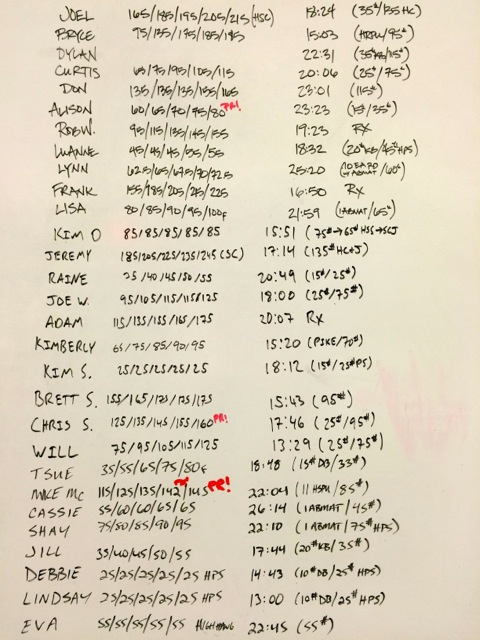 JOEL 165/185/195/205/215 (HSC) 18:24 (35#/135 HC)
BRYCE 95/135/175/185/195 15:03 (HRPU/95#)
DYLAN 22:31 (35KB/15#)
CURTIS 65/75/95/105/115 20:06 (25#/75#)
DON 135/135/135/155/165 23:01 (115#)
ALISON 60/65/70/75/80 PR! 23:23 (15#/35#)
ROB W. 95/115/135/145/155 19:23 RX
LUANNE 45/45/45/55/55 18:32 (20#KB/45#HPS)
LYNN 62.5/65/67.5/70/72.5 25:20 (1 ABMAT/60#)
FRANK 155/185/205/215/225 16:50 RX
LISA 80/85/90/95/100f 21:59 (1ABMAT/65#)
KIM O 85/85/85/85/85 15:51 (75#→65# HSS→SCJ
JEREMY 185/205/225/235/245 (SC) 17:14 (135# HC+J)
RAINE 35/40/45/50/55 20:49 (15#/25#)
JOE W. 95/105/115/115/125 18:00 (25#/75#)
ADAM 115/135/155/165/175 20:07 Rx
KIMBERLY 65/75/85/90/95 15:20 (PIKE/70#)
KIM S. 25/25/25/25/25 18:12 (15#/25#PS)
BRETT S. 155/165/170/175/175 15:43 (95#)
CHRIS S. 125/135/145/155/160 PR! 17:46 (25#/95#)
WILL 75/95/105/115/125 13:29 (25#/75#)
TSUE 35/55/65/75/80f 18:48 (15#DB/33#)
MIKE MC 115/125/135/142/145 PR! 22:04 (11 HSPU/85#)
CASSIE 55/60/60/65/65 26:14 (1 ABMAT/45#)
SHAY 75/80/85/90/95 22:10 (1 ABMAT/75# HPS)
JILL 35/40/45/50/55 17:44 (20#KB/35#)
DEBBIE 25/25/25/25/25 HPS 14:43 (10#DB/25# HPS)
LINDSAY 25/25/25/25/25 HPS 13:00 (10#DB/25# HPS)
EVA 55/55/55/55/55 HIGH HANG 22:45 (55#)